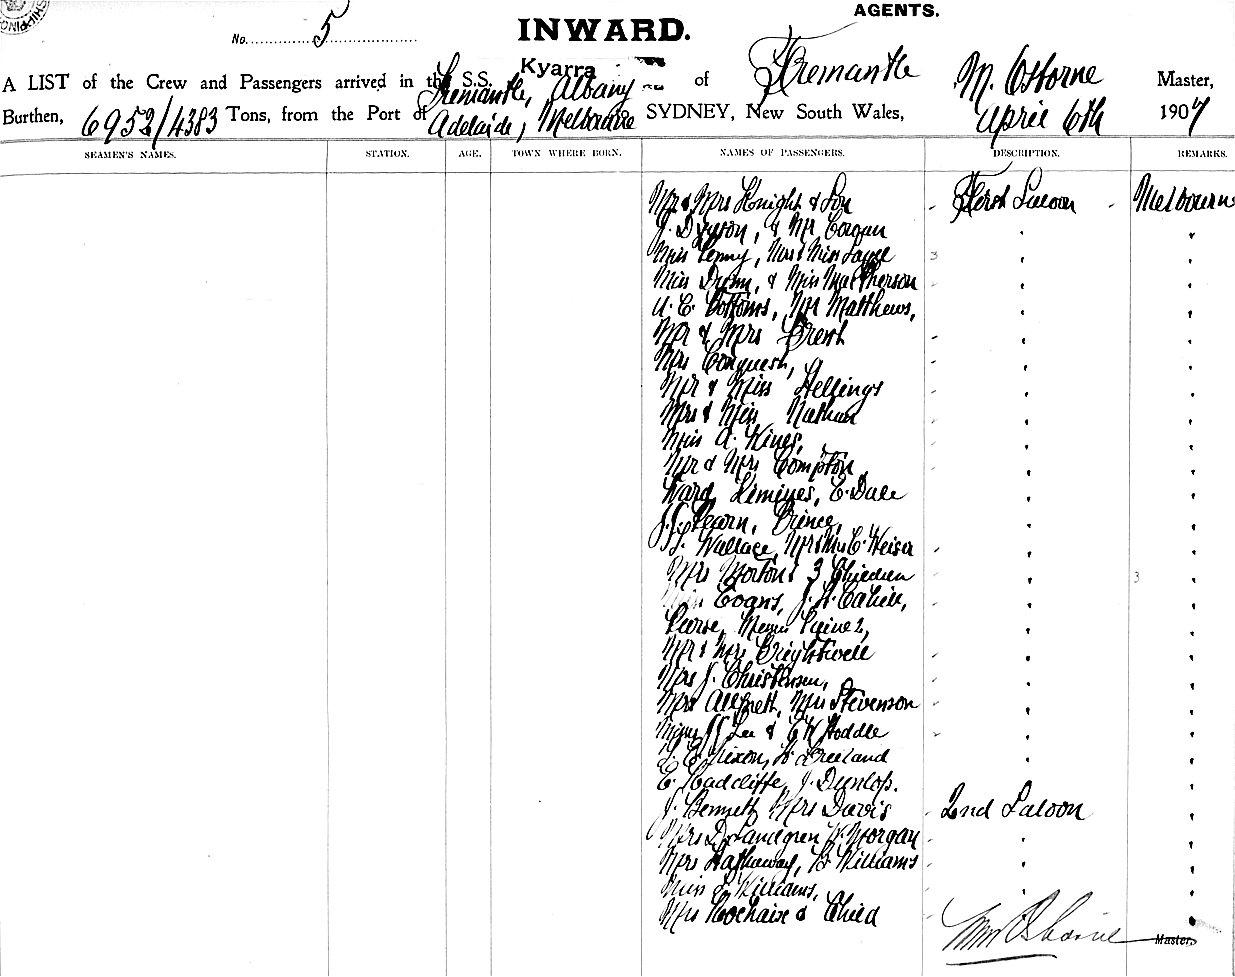 AGENTS.
No. 5 INWARD.
A LIST of the Crew and Passengers arrived in the S.S. Kyarra of Fremantle M. Osborne Master,
Burthen, 6952/4383 Tons, from the Port of Fremantle, Albany Adelaide, Melbourne SYDNEY, New South Wales, April 6th 1907
SEAMEN'S NAMES. STATION. AGE. TOWN WHERE BORN. NAMES OF PASSENGERS. DESCRIPTION. REMARKS.
Mr & Mrs Knight & Son First Saloon Melbourne
J. Dyson, & Mr Corgan
Miss Penny, Mrs & Miss
Miss Dunn, & Miss MacPherson
A. E. Bottoms, Mr Matthews,
Mr & Mrs Brent
Mrs Conquest,
Mr & Miss Hellings
Mrs & Miss Nathan
Miss A. Hines,
Mr & Mrs Compton
Ward, Kimines, E. Dale
Hearn, Prince,
Wallace, Mr & Mrs C. Weiser
Mrs Morton & 3 Children
Evans, J. H. Cahill,
Pearse,
Mr & Mrs Brightwell
Mrs J. Christensen,
Mrs Allpress, Miss Stevenson
Lee & Hoddle
Nixon, Freeland
E. Radcliffe, J. Dunlop.
J. Bennett, Mrs Davis 2nd Saloon
Mrs D. Landgren, Morgan
Mrs Hathaway, B Williams
Miss Williams,
& Child
Osborne Master.